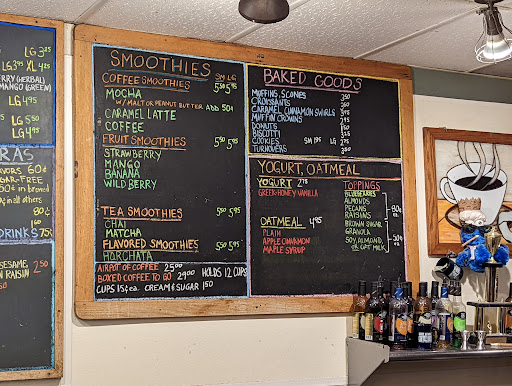 LG 3.25
LG 3.95 XL 4.25
LG 4.95
LG 4.95
FREE
60¢
80¢
DRINKS 75¢
SESAME
RAISIN 2.50
SMOOTHIES SM LG
COFFEE SMOOTHIES 5.50 5.95
MOCHA
W/ MALT OR PEANUT BUTTER ADD 50¢
CARAMEL LATTE
COFFEE
FRUIT SMOOTHIES 5.50 5.95
STRAWBERRY
MANGO
BANANA
WILD BERRY
TEA SMOOTHIES 5.50 5.95
CHAI
MATCHA
FLAVORED SMOOTHIES 5.50 5.95
HORCHATA
AIRPOT OF COFFEE 25.00
BOXED COFFEE TO GO 29.00 HOLDS 12 CUPS
CUPS 15¢ ea. CREAM & SUGAR 1.50
BAKED GOODS
MUFFINS, SCONES
CROISSANTS
CARAMEL CINNAMON SWIRLS
MUFFIN CROWNS
DONUTS
BISCOTTI
COOKIES SM 1.95 LG
TURNOVERS
YOGURT, OATMEAL
YOGURT 2.75
GREEK-HONEY VANILLA
OATMEAL 4.95
PLAIN
APPLE CINNAMON
MAPLE SYRUP
TOPPINGS
BLUEBERRIES
ALMONDS
PECANS
RAISINS
80¢ ea
BROWN SUGAR
GRANOLA
SOY, ALMOND,
OAT MILK
50¢ ea